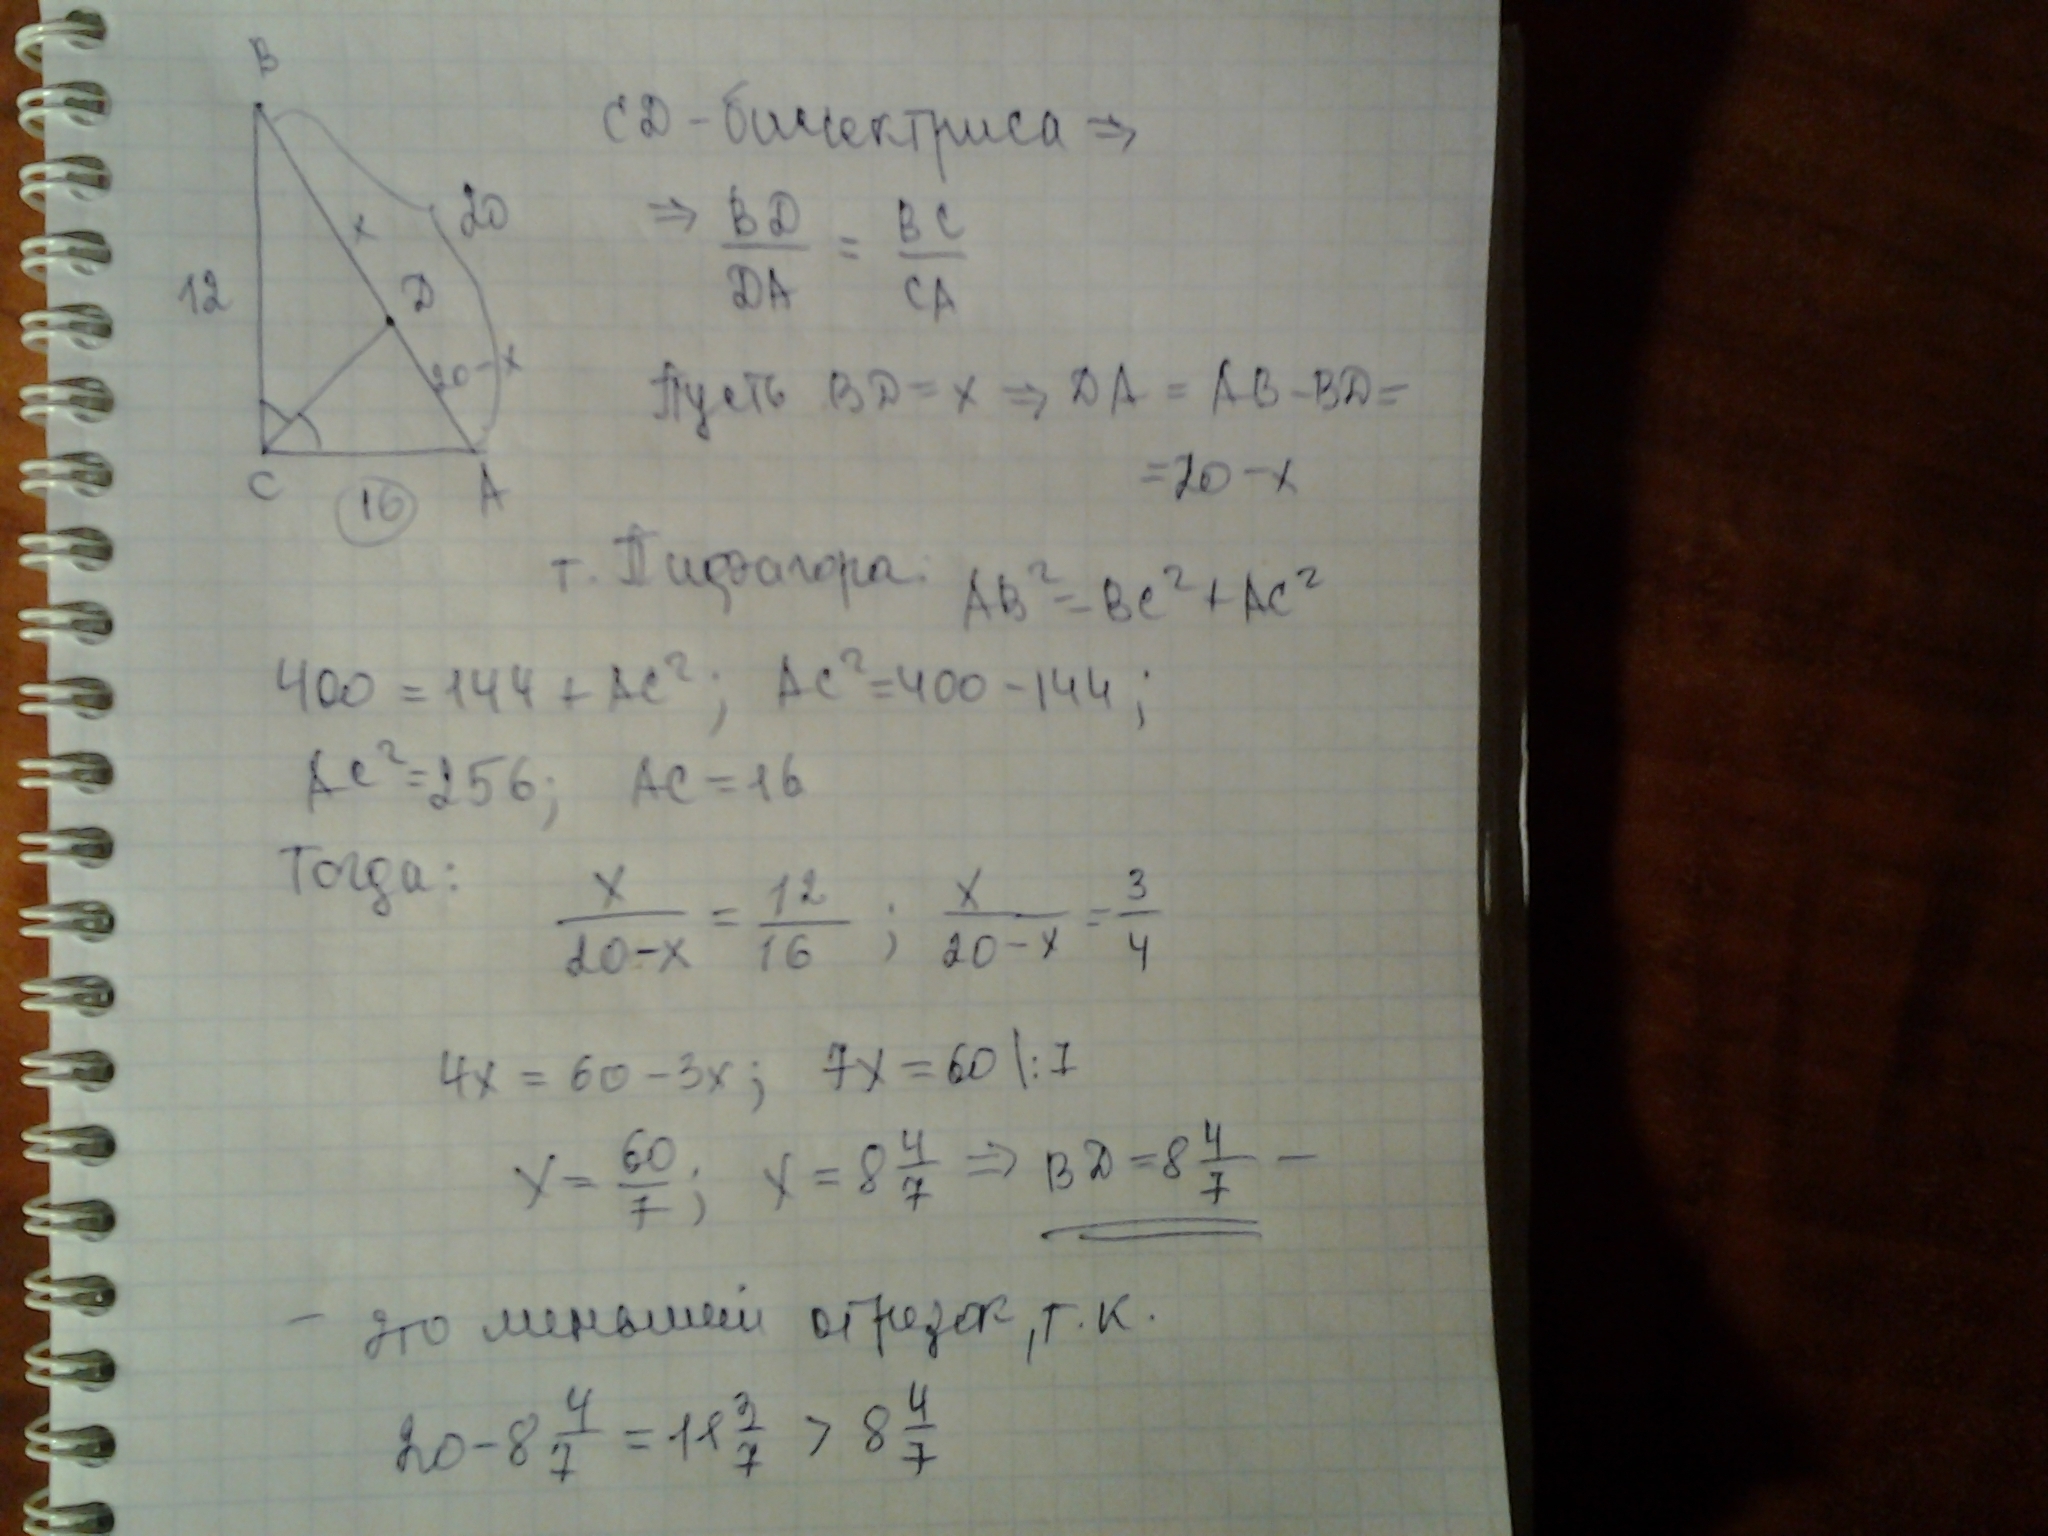 B
CD - биссектриса ⇒
x
20
⇒ BD/DA = BC/CA
12
D
20-x
Пусть BD = x ⇒ DA = AB - BD =
= 20 - x
C
16
A
т. Пифагора: AB² = BC² + AC²
400 = 144 + AC²; AC² = 400 - 144;
AC² = 256; AC = 16
Тогда: x/(20-x) = 12/16 ; x/(20-x) = 3/4
4x = 60 - 3x; 7x = 60 |:7
x = 60/7; x = 8 4/7 ⇒ BD = 8 4/7 -
- это меньший отрезок, т.к.
20 - 8 4/7 = 11 3/7 > 8 4/7